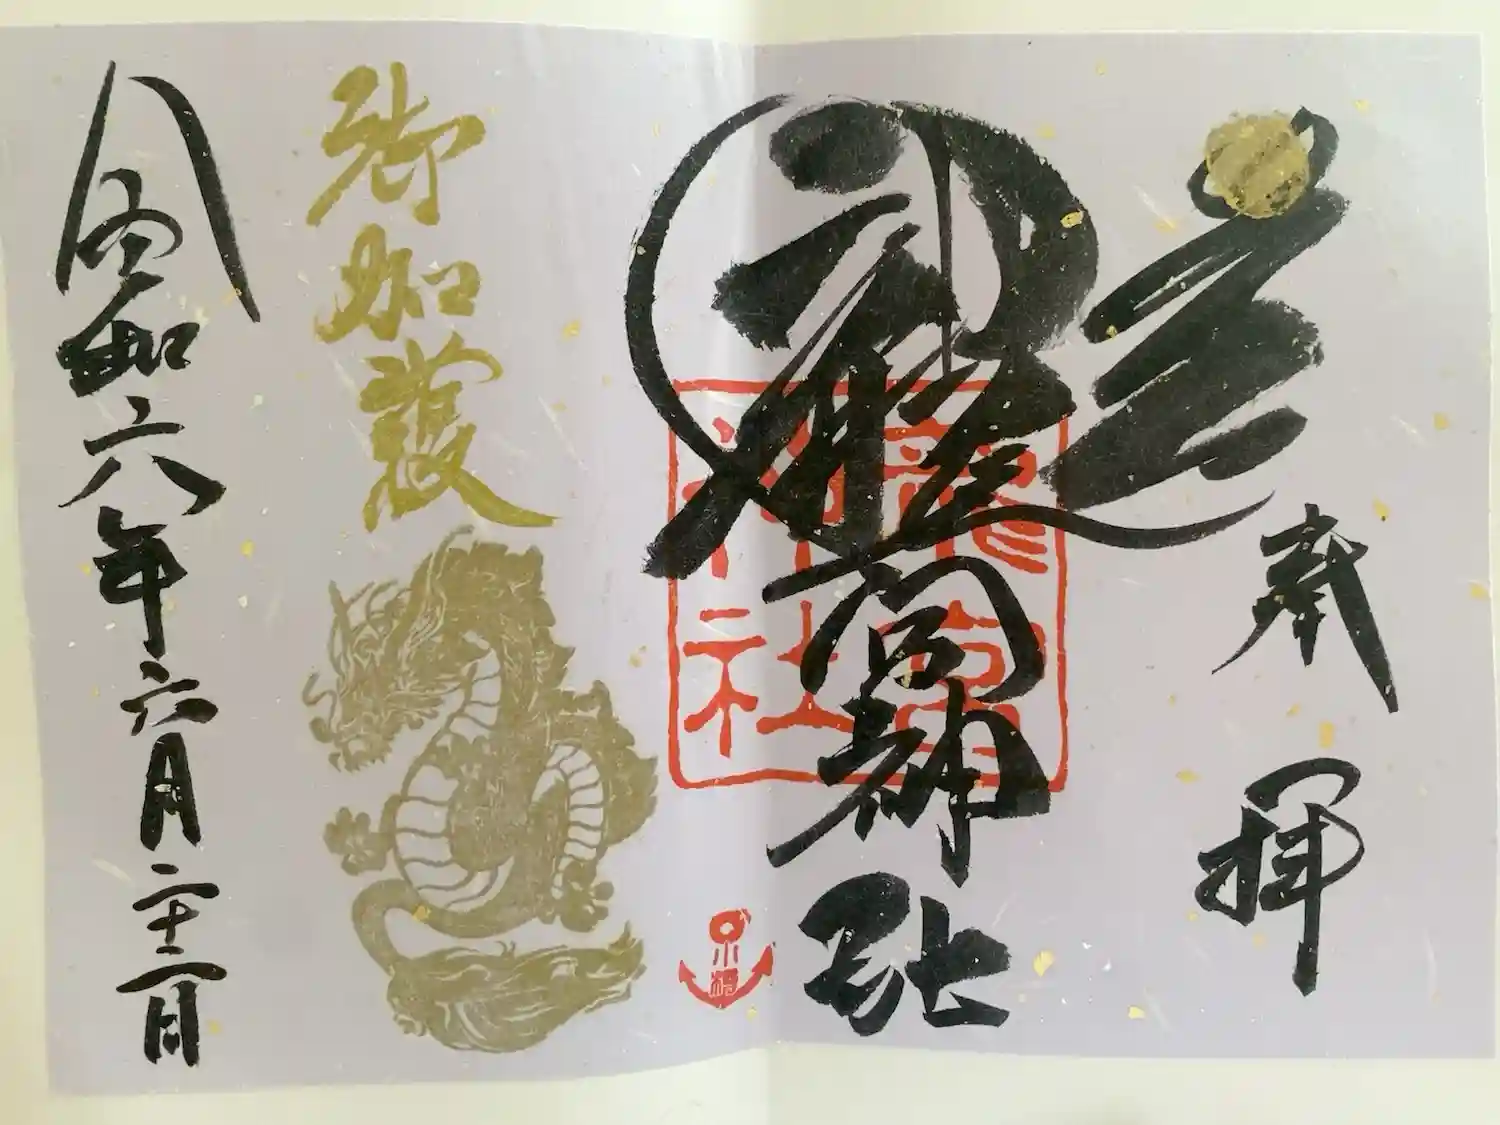 奉拝
龍宮神社
龍宮神社
小樽
御加護
令和六年六月二十二日